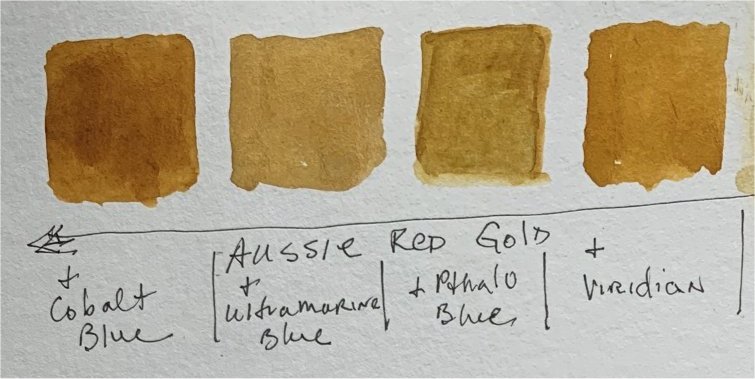 Aussie Red Gold
+
Cobalt
Blue
+
Ultramarine
Blue
+ Pthalo
Blue
+
Viridian